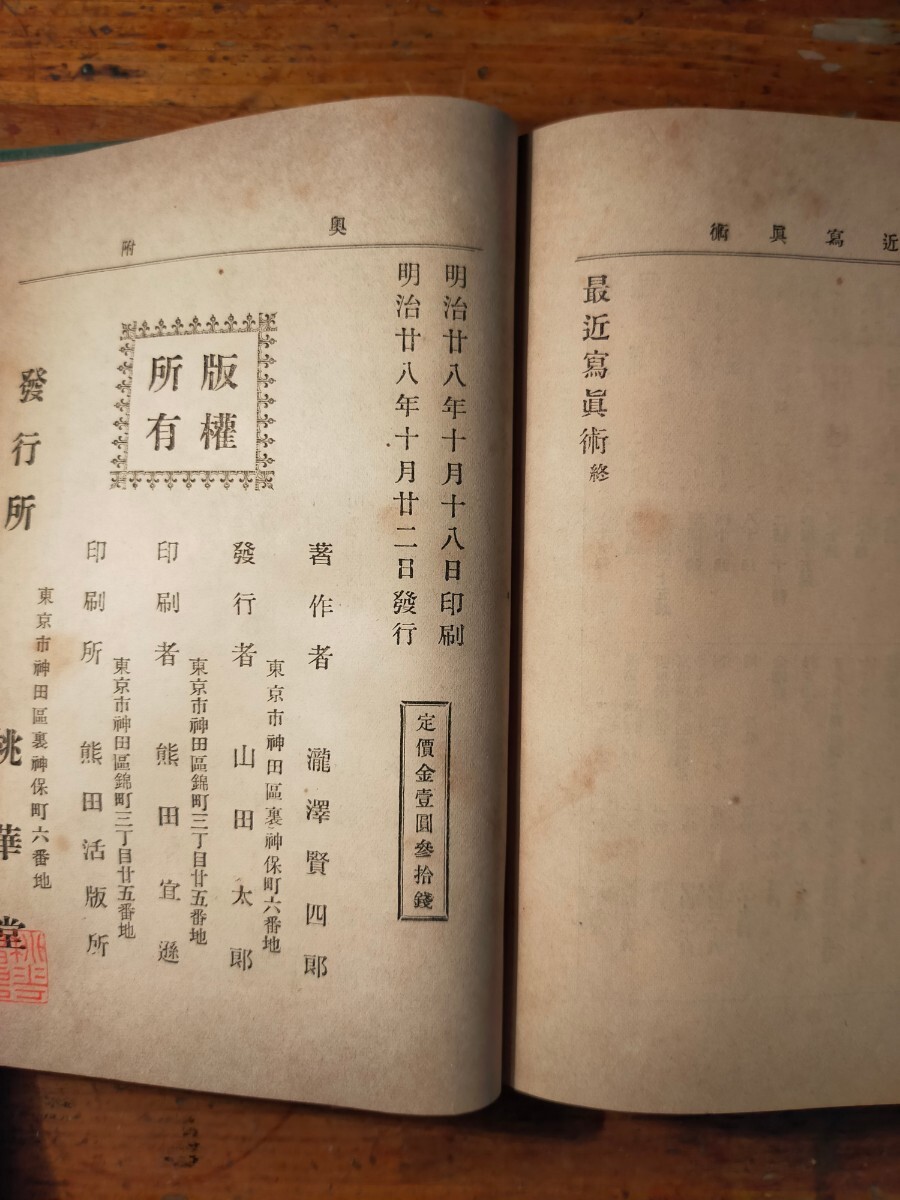 近寫眞術
最近寫眞術終
奥附
明治廿八年十月十八日印刷
明治廿八年十月廿二日發行
定價金壹圓參拾錢
版權
所有
著作者 瀧澤賢四郎
東京市神田區裏神保町六番地
發行者 山田太郎
東京市神田區錦町三丁目廿五番地
印刷者 熊田宜遜
東京市神田區錦町三丁目廿五番地
印刷所 熊田活版所
東京市神田區裏神保町六番地
發行所 桃華堂